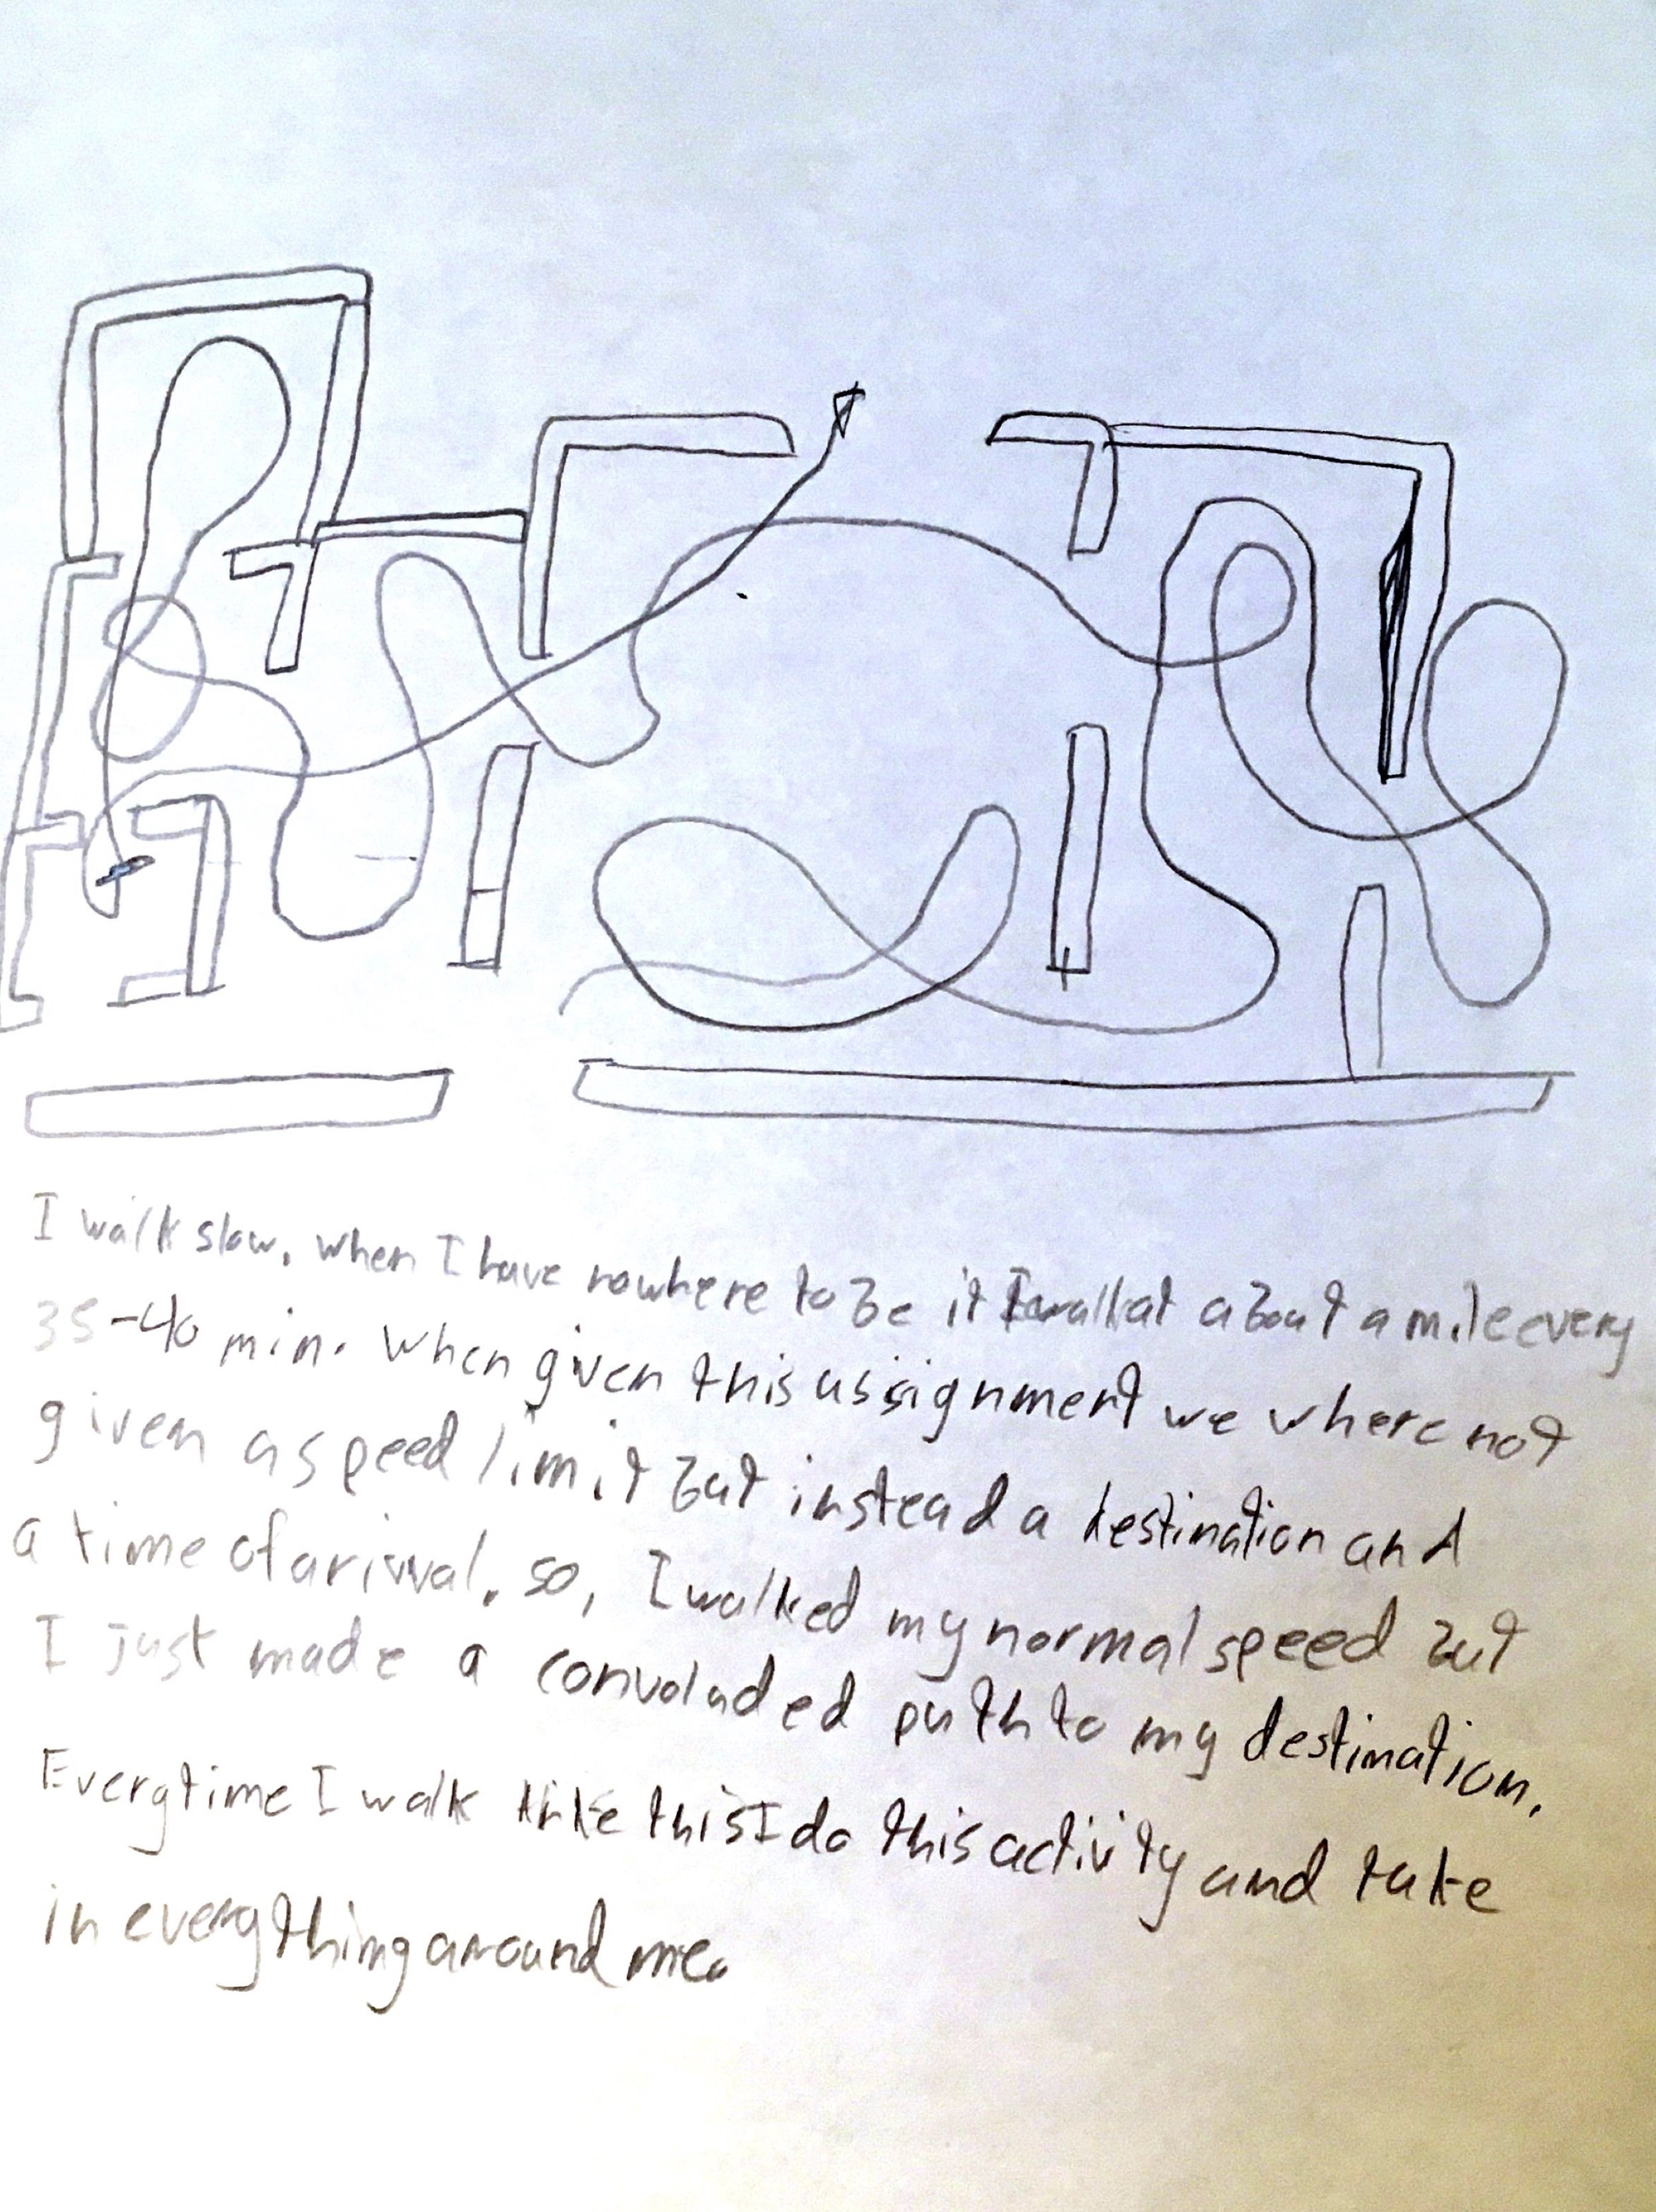 I walk slow. when I have nowhere to be it I walk at about a mile every
35-40 min. When given this assignment we where not
given a speed limit but instead a destination and
a time of arivval. so, I walked my normal speed but
I just made a convoluded path to my destination.
Everytime I walk like this I do this activity and take
in everything around me.